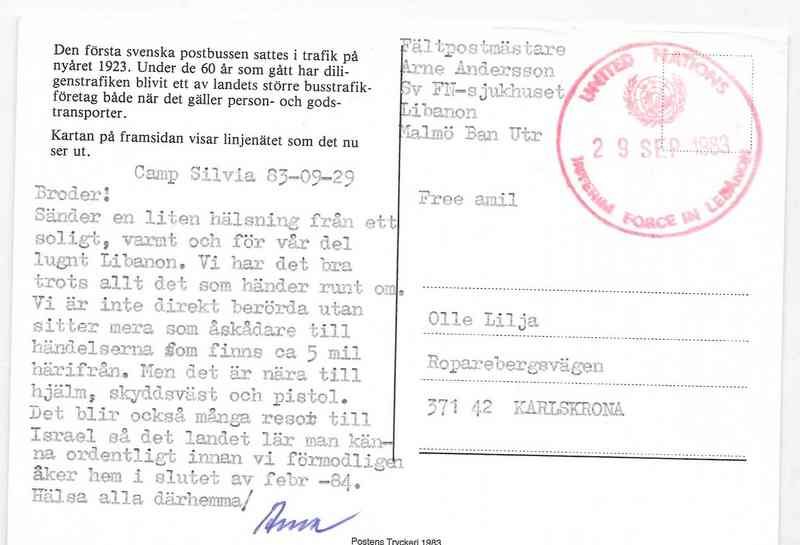 Den första svenska postbussen sattes i trafik på
nyåret 1923. Under de 60 år som gått har dili-
genstrafiken blivit ett av landets större busstrafik-
företag både när det gäller person- och gods-
transporter.
Kartan på framsidan visar linjenätet som det nu
ser ut.
Camp Silvia 83-09-29
Broder!
Sänder en liten hälsning från ett
soligt, varmt och för vår del
lugnt Libanon. Vi har det bra
trots allt det som händer runt om.
Vi är inte direkt berörda utan
sitter mera som åskådare till
händelserna som finns ca 5 mil
härifrån. Men det är nära till
hjälm, skyddsväst och pistol.
Det blir också många resor till
Israel så det landet lär man kän-
na ordentligt innan vi förmodligen
åker hem i slutet av febr -84.
Hälsa alla därhemma!
Arne
Fältpostmästare
Arne Andersson
Sv FN-sjukhuset
Libanon
Malmö Ban Utr
UNITED NATIONS
29 SEP 1983
INTERIM FORCE IN LEBANON
Free amil
Olle Lilja
Roparebergsvägen
371 42 KARLSKRONA
Postens Tryckeri 1983